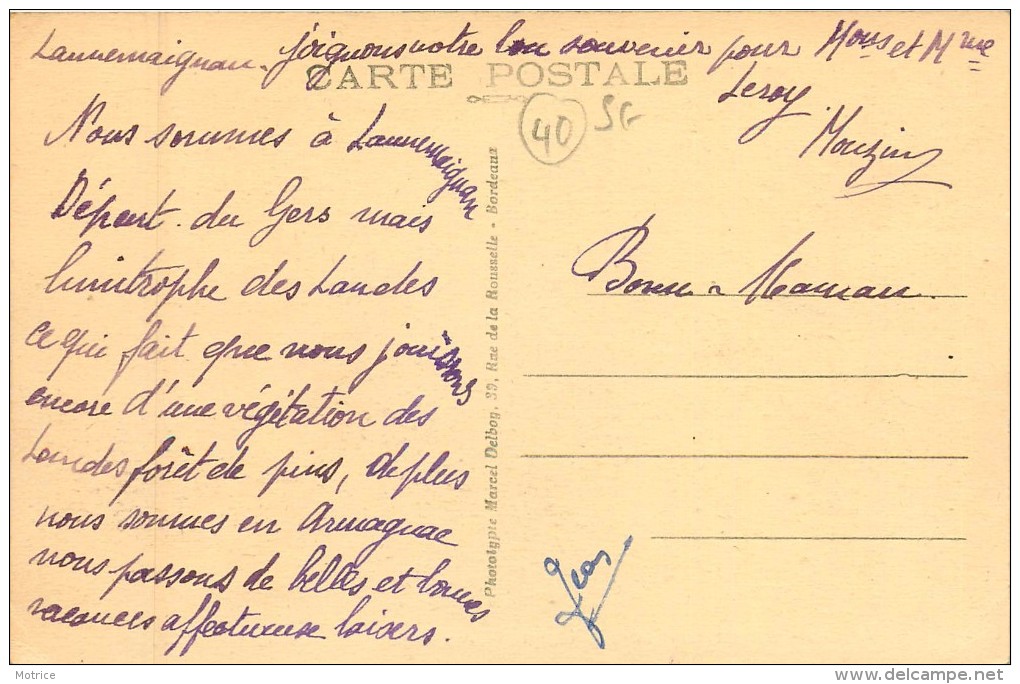 Lannemaignan. joignons notre bon souvenir pour Mons et Mme
Leroy
Mouzin
CARTE POSTALE
40 SG
Nous sommes à Lannemaignan
Départ. du Gers mais
limitrophe des Landes
ce qui fait que nous jouissons
encore d'une végétation des
Landes forêt de pins, de plus
nous sommes en Armagnac
nous passons de belles et bonnes
vacances affectueuse baisers.
Phototypie Marcel Delboy, 39, Rue de la Rousselle - Bordeaux
Bonne-Maman
Motrice
delcampe.net